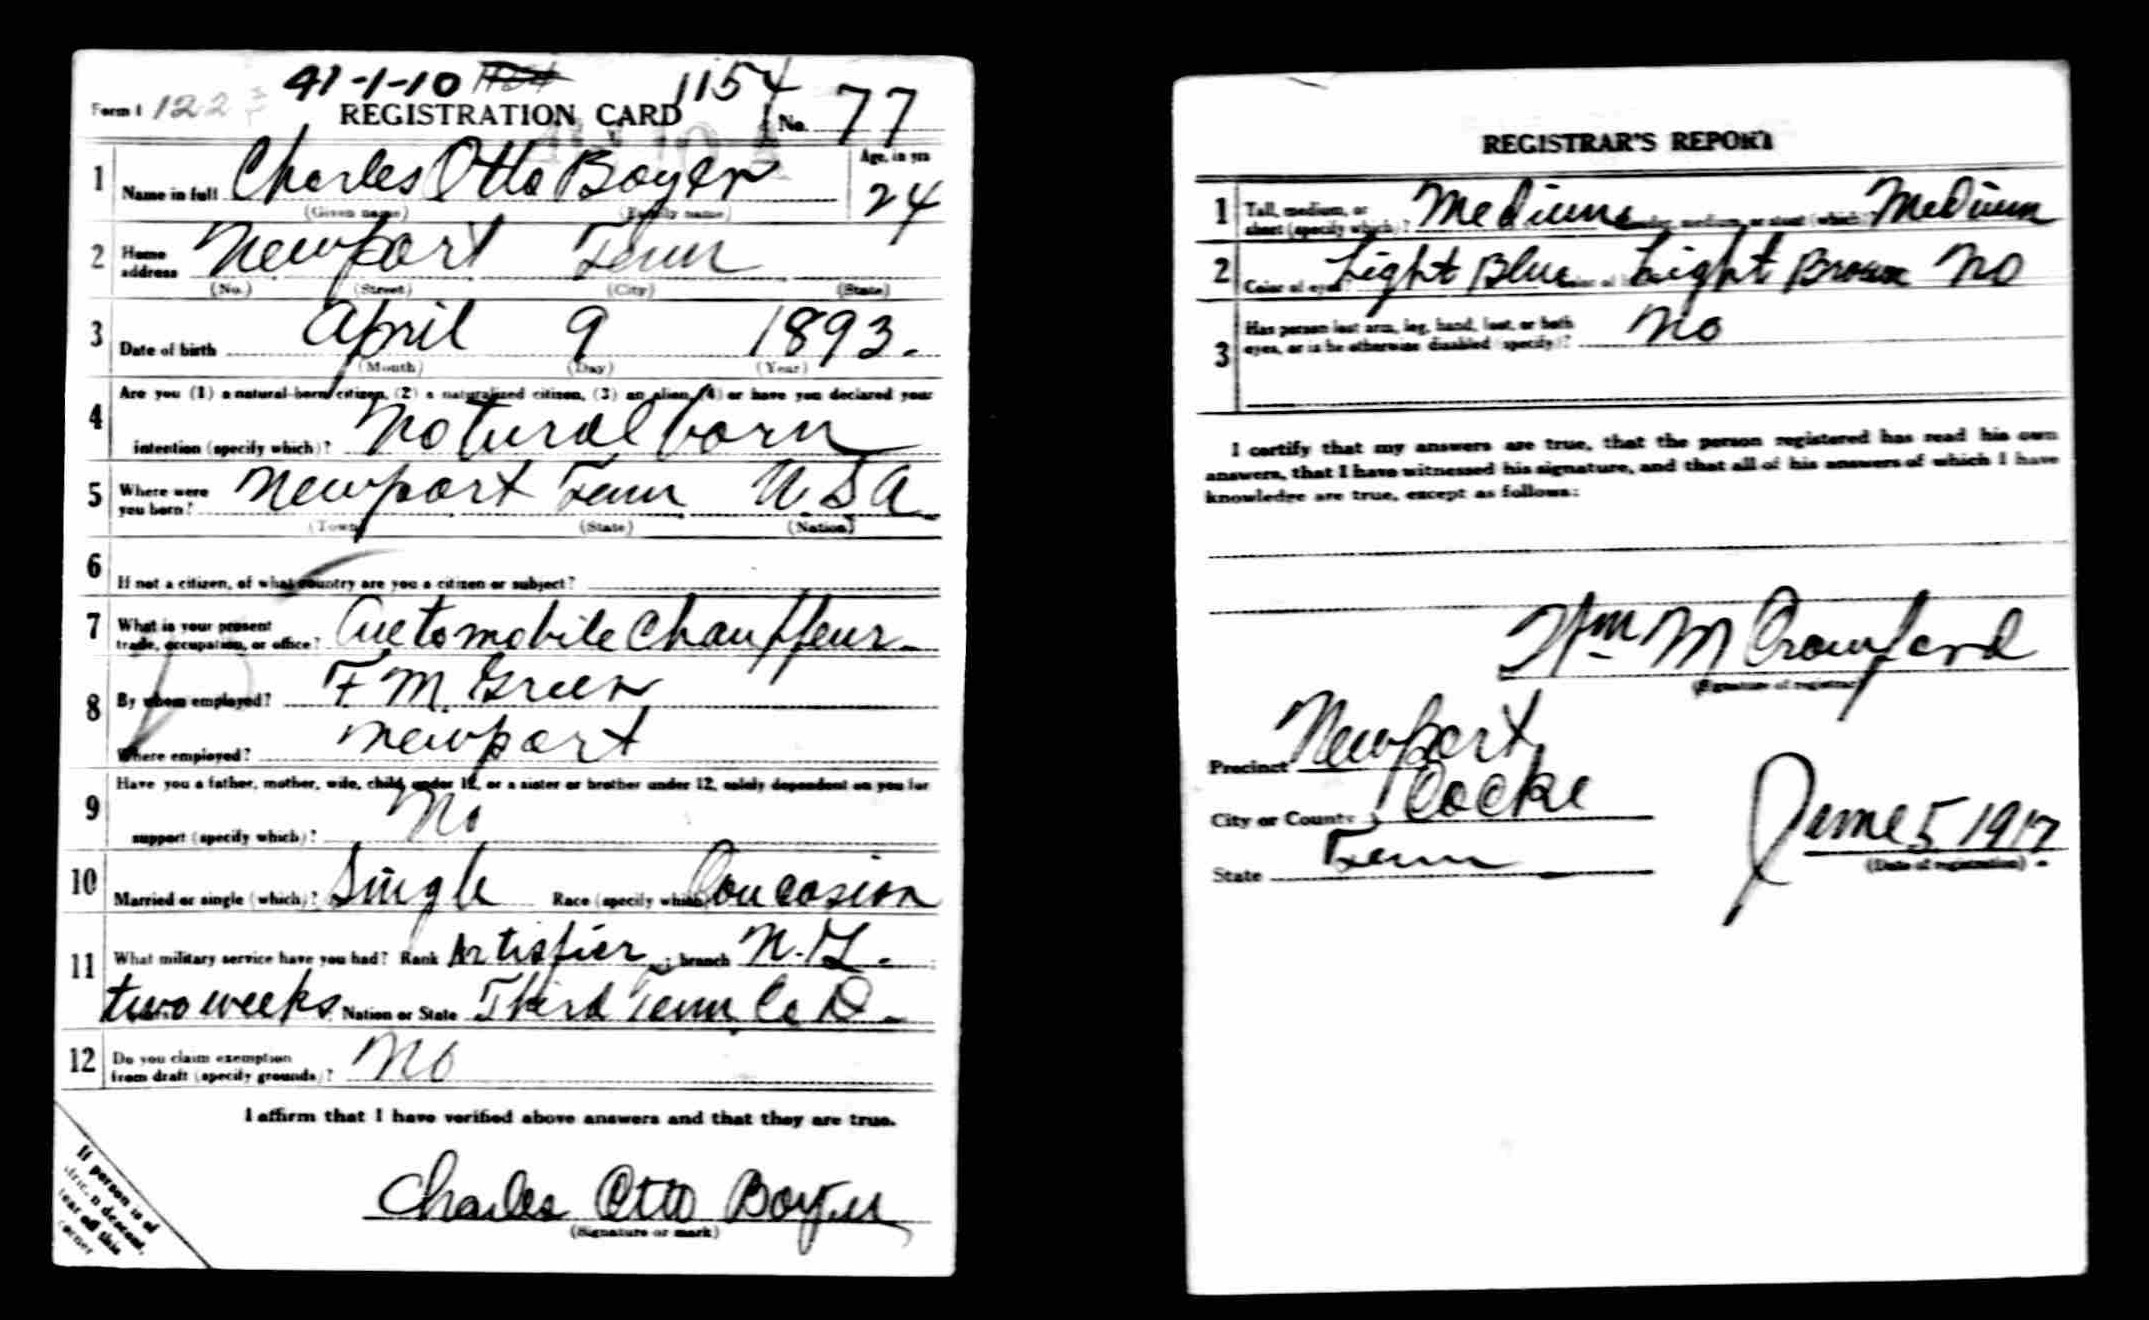 41-1-10 1154
Form 1 122 REGISTRATION CARD No. 77
1 Name in full Charles Otto Boyer Age, in yrs 24
(Given name) (Family name)
2 Home address Newport Tenn
(No.) (Street) (City) (State)
3 Date of birth April 9 1893.
(Month) (Day) (Year)
4 Are you (1) a natural-born citizen, (2) a naturalized citizen, (3) an alien, (4) or have you declared your
intention (specify which)? Natural born
5 Where were you born? Newport Tenn U.S.A.
(Town) (State) (Nation)
6 If not a citizen, of what country are you a citizen or subject?
7 What is your present trade, occupation, or office? Automobile Chauffeur
8 By whom employed? F M. Green
Where employed? Newport
9 Have you a father, mother, wife, child under 12, or a sister or brother under 12, solely dependent on you for
support (specify which)? No
10 Married or single (which)? Single Race (specify which)? Coucasion
11 What military service have you had? Rank Artisfier ; branch N.G.
two weeks Nation or State Third Tenn Co D.
12 Do you claim exemption from draft (specify grounds)? No
I affirm that I have verified above answers and that they are true.
Charles Otto Boyer
(Signature or mark)
If person is of
descent,
tear off this
corner
REGISTRAR'S REPORT
1 Tall, medium, or short (specify which)? Medium slender, medium, or stout (which)? Medium
2 Color of eyes? Light Blue Color of Light Brown No
3 Has person lost arm, leg, hand, foot, or both eyes, or is he otherwise disabled (specify)? No
I certify that my answers are true, that the person registered has read his own
answers, that I have witnessed his signature, and that all of his answers of which I have
knowledge are true, except as follows:
Wm M Crawford
(Signature of registrar)
Precinct Newport
City or County Cocke
State Tenn
June 5 1917
(Date of registration)